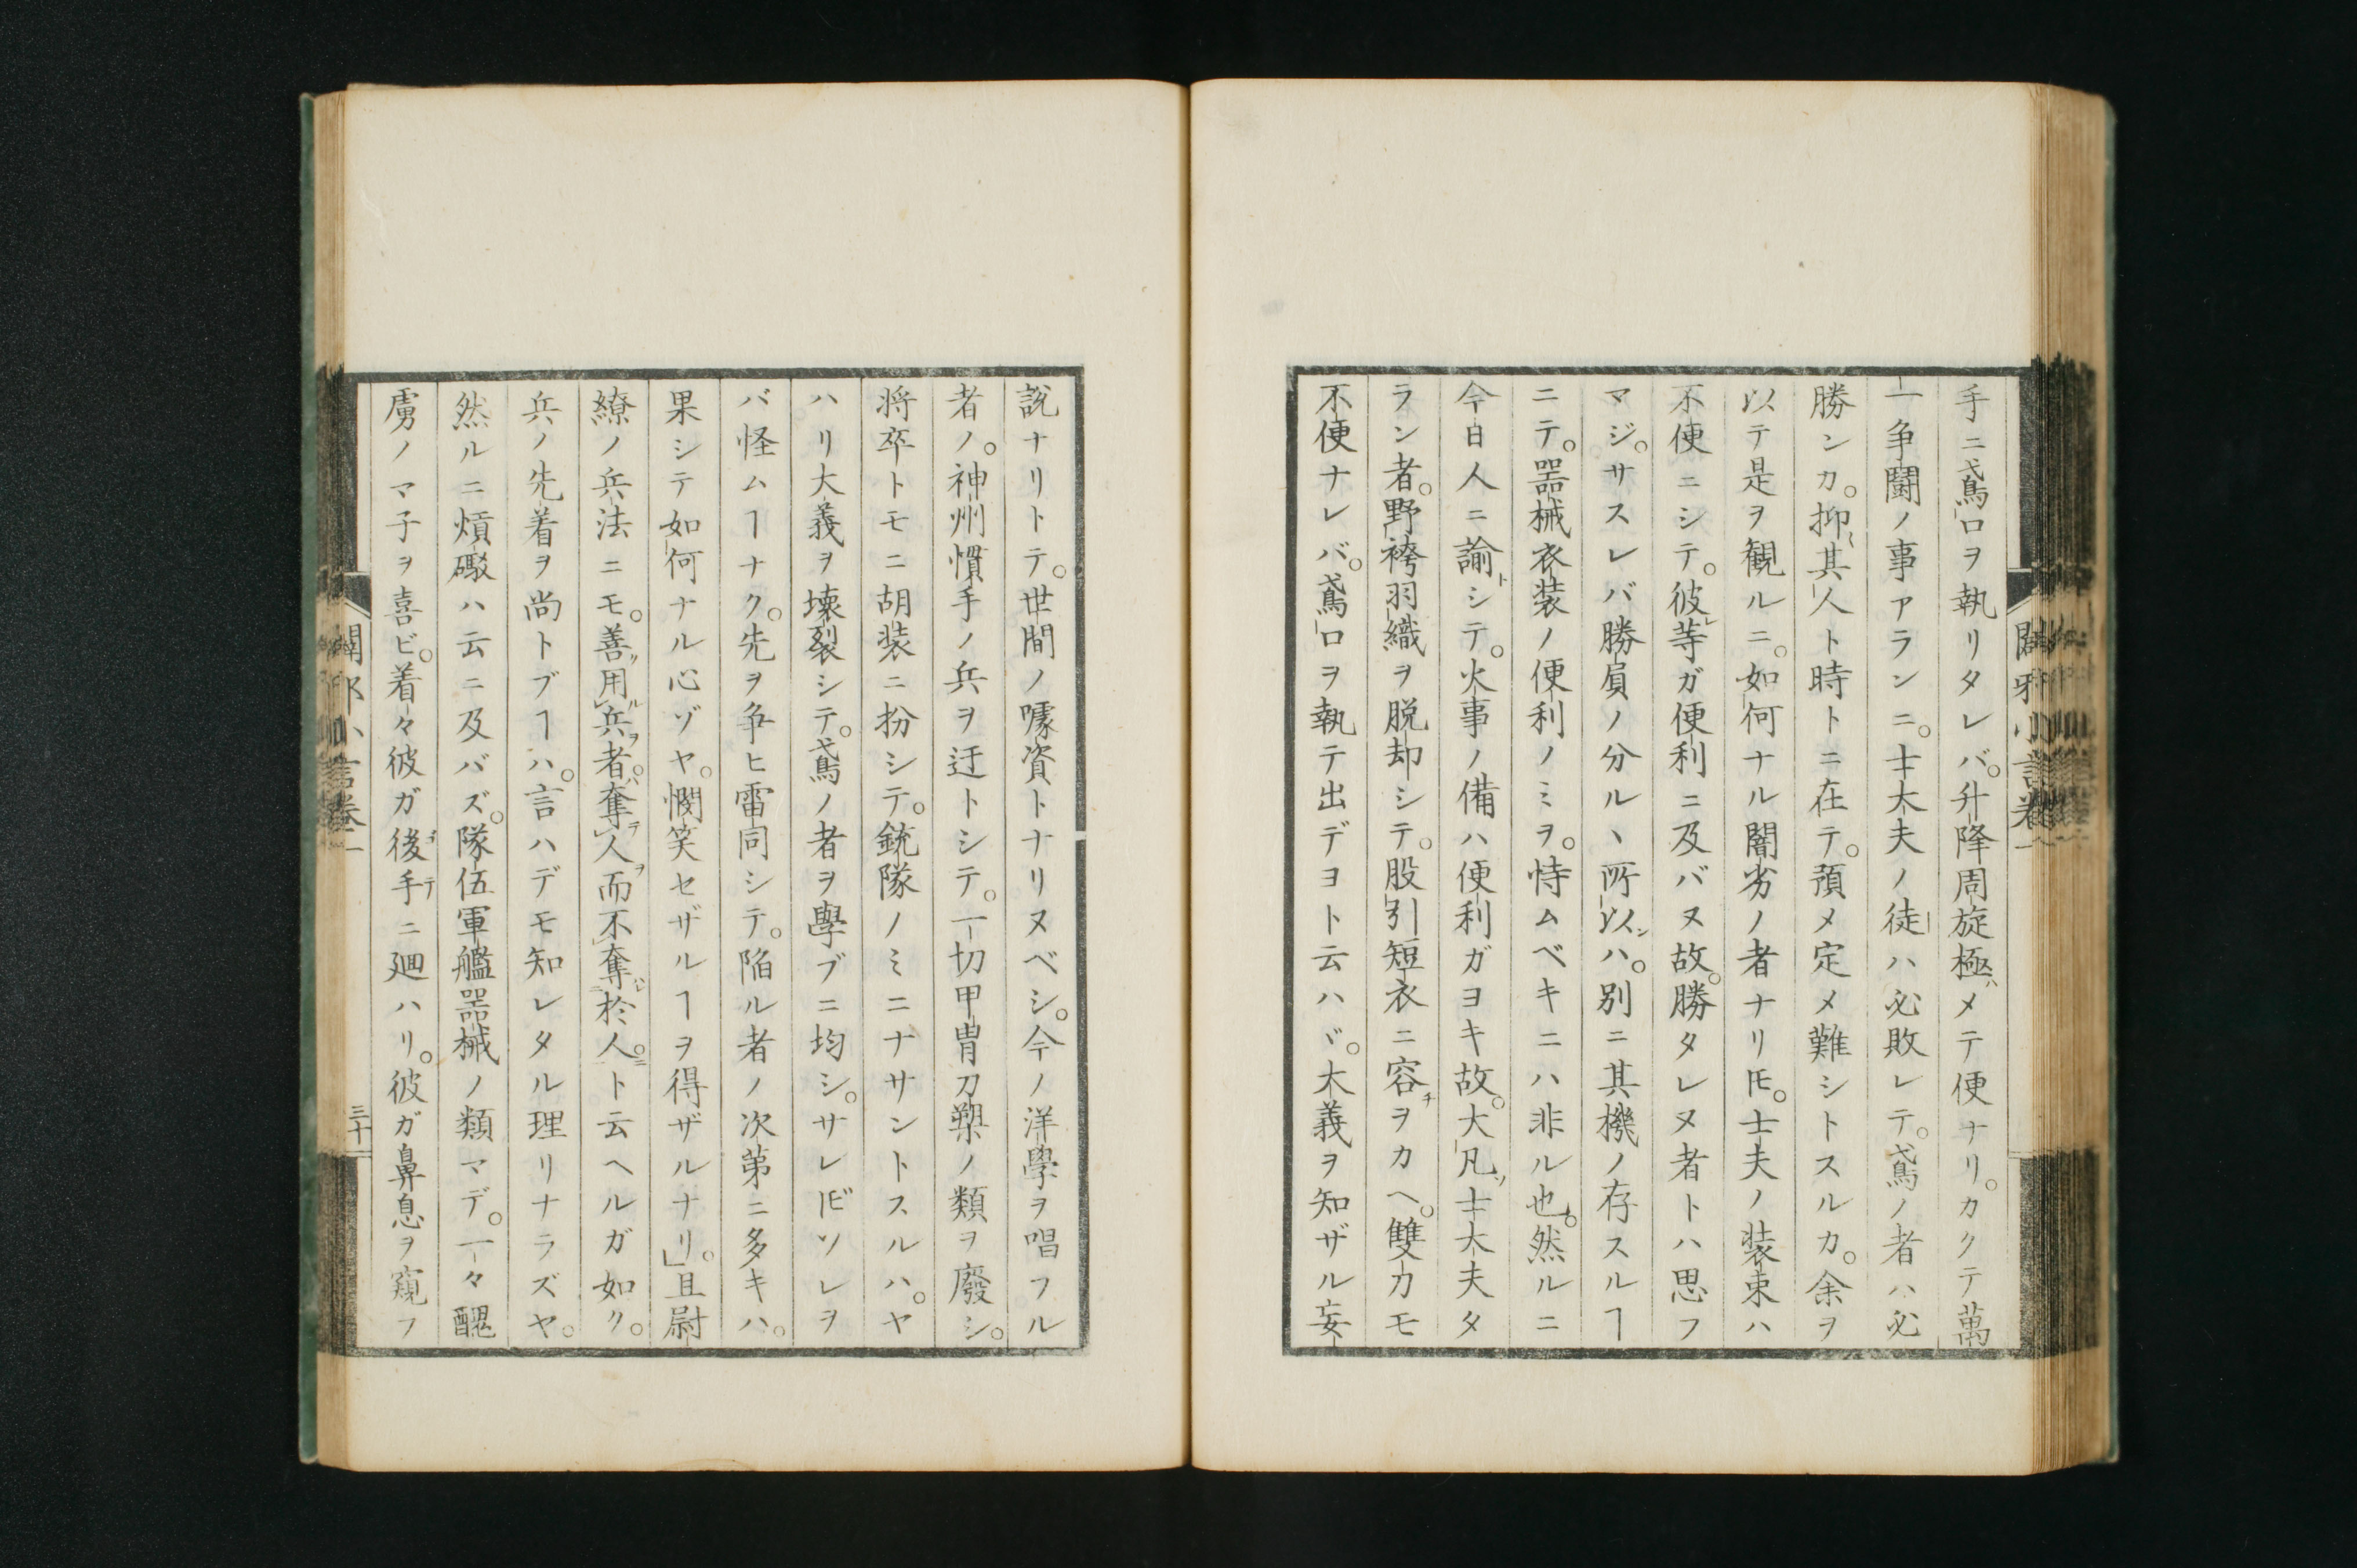 手ニ鳶口ヲ執リタレバ。升降周旋極メテ便ナリ。カクテ萬
一争鬪ノ事アランニ。士大夫ノ徒ハ必敗レテ。鳶ノ者ハ必
勝ンカ。抑其人ト時トニ在テ。預メ定メ難シトスルカ。余ヲ
以テ是ヲ観ルニ。如何ナル闇劣ノ者ナリ𪜈。士夫ノ装束ハ
不便ニシテ。彼等ガ便利ニ及バヌ故。勝タレヌ者トハ思フ
マジ。サスレバ勝負ノ分ルヽ所以ハ。別ニ其機ノ存スルヿ
ニテ。器械衣装ノ便利ノミヲ。恃ムベキニハ非ル也。然ルニ
今日人ニ諭シテ。火事ノ備ハ便利ガヨキ故。大凡士大夫タ
ラン者。野袴羽織ヲ脱却シテ。股引短衣ニ容ヲカヘ。雙刀モ
不便ナレバ。鳶口ヲ執テ出デヨト云ハヾ。大義ヲ知ザル妄
闢邪小言巻一
説ナリトテ。世間ノ噱資トナリヌベシ。今ノ洋學ヲ唱フル
者ノ。神州慣手ノ兵ヲ迂トシテ。一切甲冑刀槊ノ類ヲ廢シ。
将卒トモニ胡装ニ扮シテ。銃隊ノミニナサントスルハ。ヤ
ハリ大義ヲ壊裂シテ。鳶ノ者ヲ學ブニ均シ。サレ𪜈ソレヲ
バ怪ムヿナク。先ヲ争ヒ雷同シテ。陥ル者ノ次第ニ多キハ。
果シテ如何ナル心ゾヤ。憫笑セザルヿヲ得ザルナリ。」且尉
繚ノ兵法ニモ。善用兵者。奪人而不奪於人。ト云ヘルガ如ク。
兵ノ先着ヲ尚トブヿハ。言ハデモ知レタル理リナラズヤ。
然ルニ熕礮ハ云ニ及バズ。隊伍軍艦器械ノ類マデ。一々醜
虜ノマ子ヲ喜ビ。着々彼ガ後手ニ廻ハリ。彼ガ鼻息ヲ窺フ
闢邪小言巻一
三十一